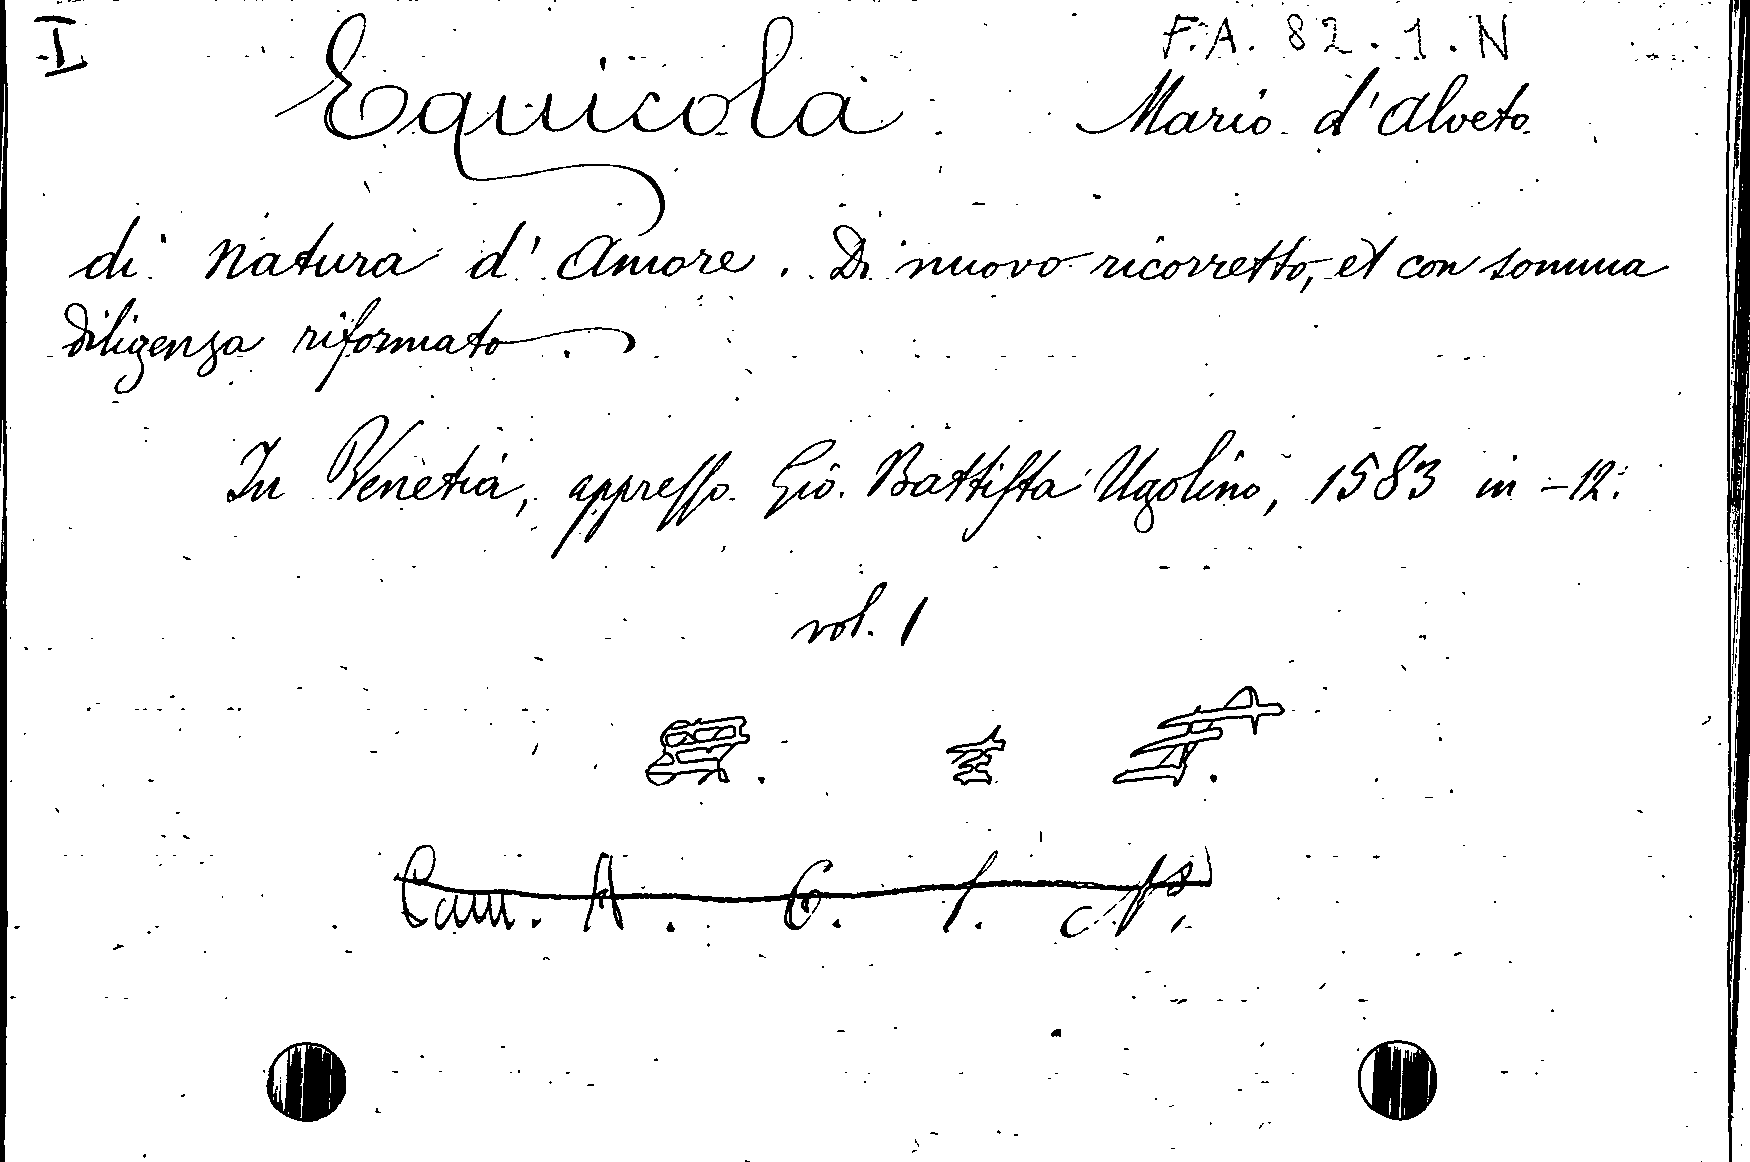 I
F.A. 82.1.N
Equicola Mario d'Alveto
di Natura d'Amore. Di nuovo ricorretto, et con somma
diligenza riformato.
In Venetia, appresso Gio. Battista Ugolino, 1583 in -12.
vol. 1
Cam. A. 6. 1.